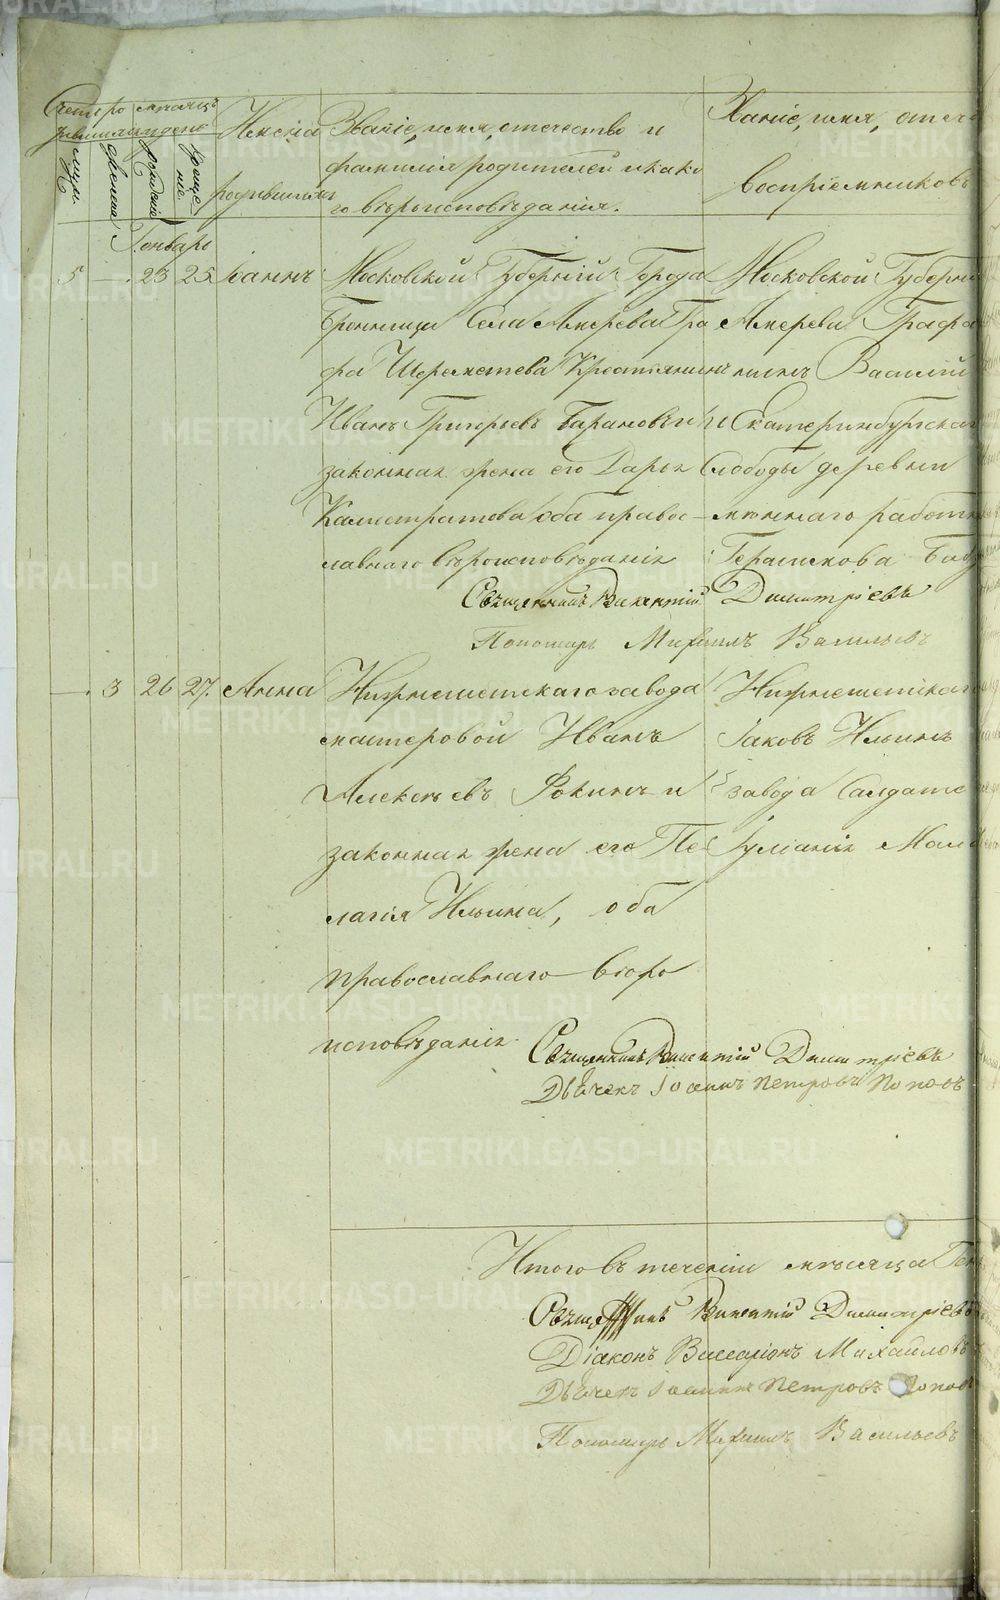 Счетъ ро
мѣсяцъ
и день
Имена
родившихся
муж.
женска
рожденія
креще
нія.
Званіе, имя, отечество и
фамилія родителей и како
го вѣроисповѣданія.
Званіе, имя, отече
воспріемниковъ
Генварь
5 — 23 25 Іоаннъ
Московской Губерніи Города
Бронницы Села Амерева Гра
фа Шереметева Крестьянинъ
Иванъ Григорьевъ Барановъ и
законная жена его Дарья
Калистратова оба право
славнаго вѣроисповѣданія
Московской Губерні
Амерева Графа
нинъ Василій
и Екатеринбургской
Слободы деревни
меннаго работн
Герасимова Баб
Священникъ Викентій Димитріевъ
Пономарь Михаилъ Васильевъ
— 3 26 27 Анна
Нижнеисетскаго завода
мастеровой Иванъ
Алексѣевъ Фокинъ и
законная жена его Пе
лагія Ильина, оба
православнаго вѣро
исповѣданія
Нижнеисетскаго
Іаковъ Ильинъ
завода Салдатс
Іуліанія Мат
Священникъ Викентій Димитріевъ
Дьячекъ Іоаннъ Петровъ Поповъ
Итого въ теченіи мѣсяца Ген
Священникъ Викентій Димитріевъ
Діаконъ Виссаріонъ Михайловъ
Дьячекъ Іоаннъ Петровъ Попов
Пономарь Михаилъ Васильевъ
METRIKI.GASO-URAL.RU